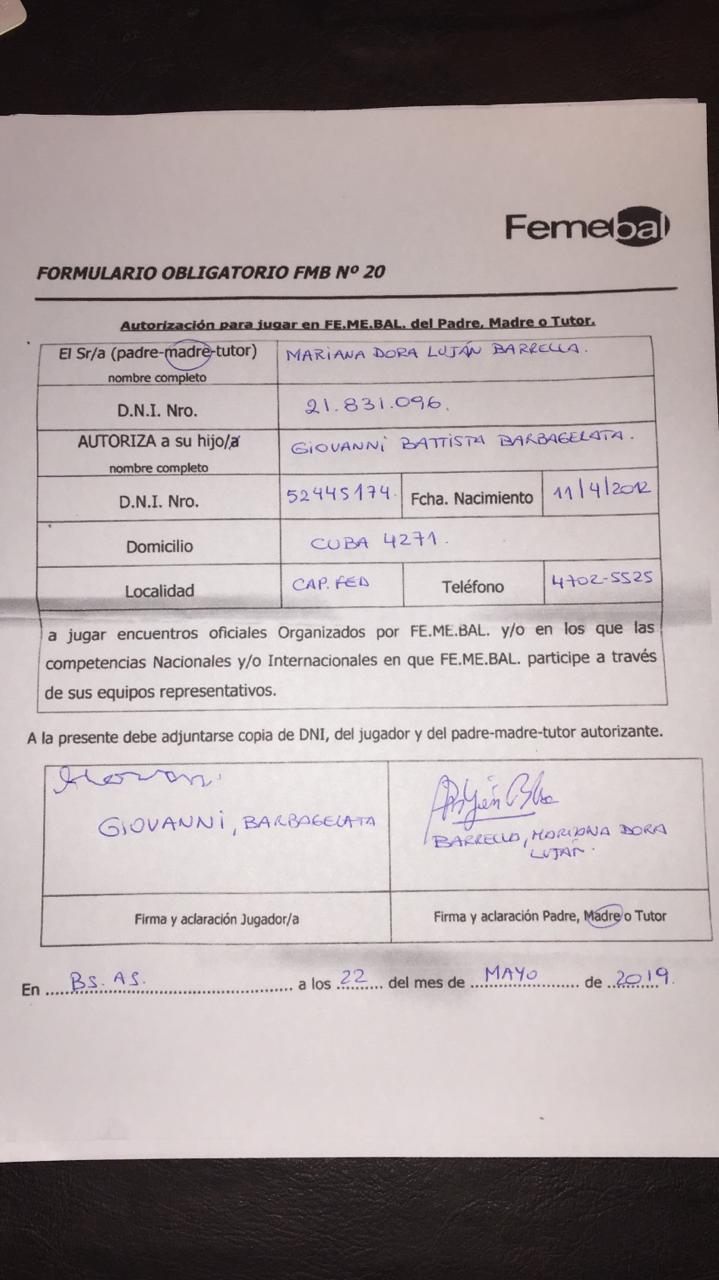 Femebal
FORMULARIO OBLIGATORIO FMB Nº 20
Autorización para jugar en FE.ME.BAL. del Padre, Madre o Tutor.
El Sr/a (padre-madre-tutor) MARIANA DORA LUJÁN BARRELLA.
nombre completo
D.N.I. Nro. 21.831.096.
AUTORIZA a su hijo/a GIOVANNI BATTISTA BARBAGELATA.
nombre completo
D.N.I. Nro. 52445174. Fcha. Nacimiento 11/4/2012
Domicilio CUBA 4271.
Localidad CAP. FED Teléfono 4702-5525
a jugar encuentros oficiales Organizados por FE.ME.BAL. y/o en los que las
competencias Nacionales y/o Internacionales en que FE.ME.BAL. participe a través
de sus equipos representativos.
A la presente debe adjuntarse copia de DNI, del jugador y del padre-madre-tutor autorizante.
GIOVANNI, BARBAGELATA
BARRELLA, MARIANA DORA
LUJÁN.
Firma y aclaración Jugador/a
Firma y aclaración Padre, Madre o Tutor
En BS. AS. a los 22 del mes de MAYO de 2019.